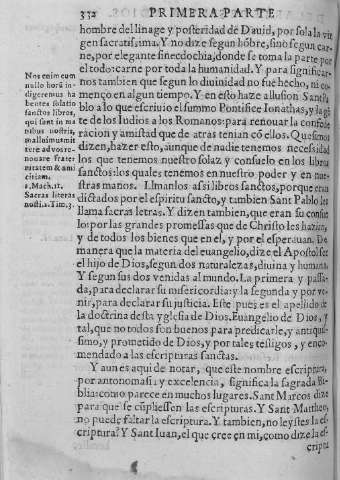 332 PRIMERA PARTE
hombre del linage y posteridad de Dauid, por sola vir
gen sacratissima. Y no dize segun hōbre, sino segun car
ne, por elegante sinecdochia, donde se toma la parte por
el todo: carne por toda la humanidad. Y para significar
nos tambien que segun lo diuinidad no fue hecho, ni co
menço en algun tiempo. Y en esto haze allusion Sant Pa
blo a lo que escriuio el summo Pontifice Ionathas, y la gē
te de los Iudios a los Romanos: para renouar la confede
racion y amistad que de atras tenian cō ellos. Quesimos
dizen, hazer esto, aunque de nadie tenemos necessidad
los que tenemos nuestro solaz y consuelo en los libros
sanctos: los quales tenemos en nuestro poder y en nue
stras manos. Llmanlos assi libros sanctos, porque eran
dictados por el espiritu sancto, y tambien Sant Pablo les
llama sacras letras. Y dizen tambien, que eran su consue
lo: por las grandes promessas que de Christo les hazian,
y de todos los bienes que en el, y por el esperauan. De
manera que la materia del euangelio, dize el Apostol ser
el hijo de Dios, segun dos naturalezas, diuina y humana.
Y segun sus dos venidas al mundo. La primera y passa
da, para declarar su misericordia: y la segunda y por ve
nir, para declarar su justicia. Este pues es el apellido de
la doctrina desta yglesia de Dios. Euangelio de Dios, y
tal, que no todos son buenos para predicarle, y antiquis
simo, y prometido de Dios, y por tales testigos, y enco
mendado a las escripturas sanctas.
Y aun es aqui de notar, que este nombre escriptura,
por antonomasia y excelencia, significa la sagrada Bi
blia: como parece en muchos lugares. Sant Marcos dize
para que se cūpliessen las escripturas. Y Sant Mattheo,
no puede faltar la escriptura. Y tambien, no leystes la es
criptura? Y Sant Iuan, el que cree en mi, como dize la es
criptu
Nos enim cum
nullo horū in
digeremus ha
bentes solatio
sanctos libros,
qui sunt in ma
nibus nostris,
maluimus mit
tere ad vos re-
nouare frater
nitatem & ami
citiam.
1. Mach. 12.
Sacras literas
nosti. 2. Tim. 3.